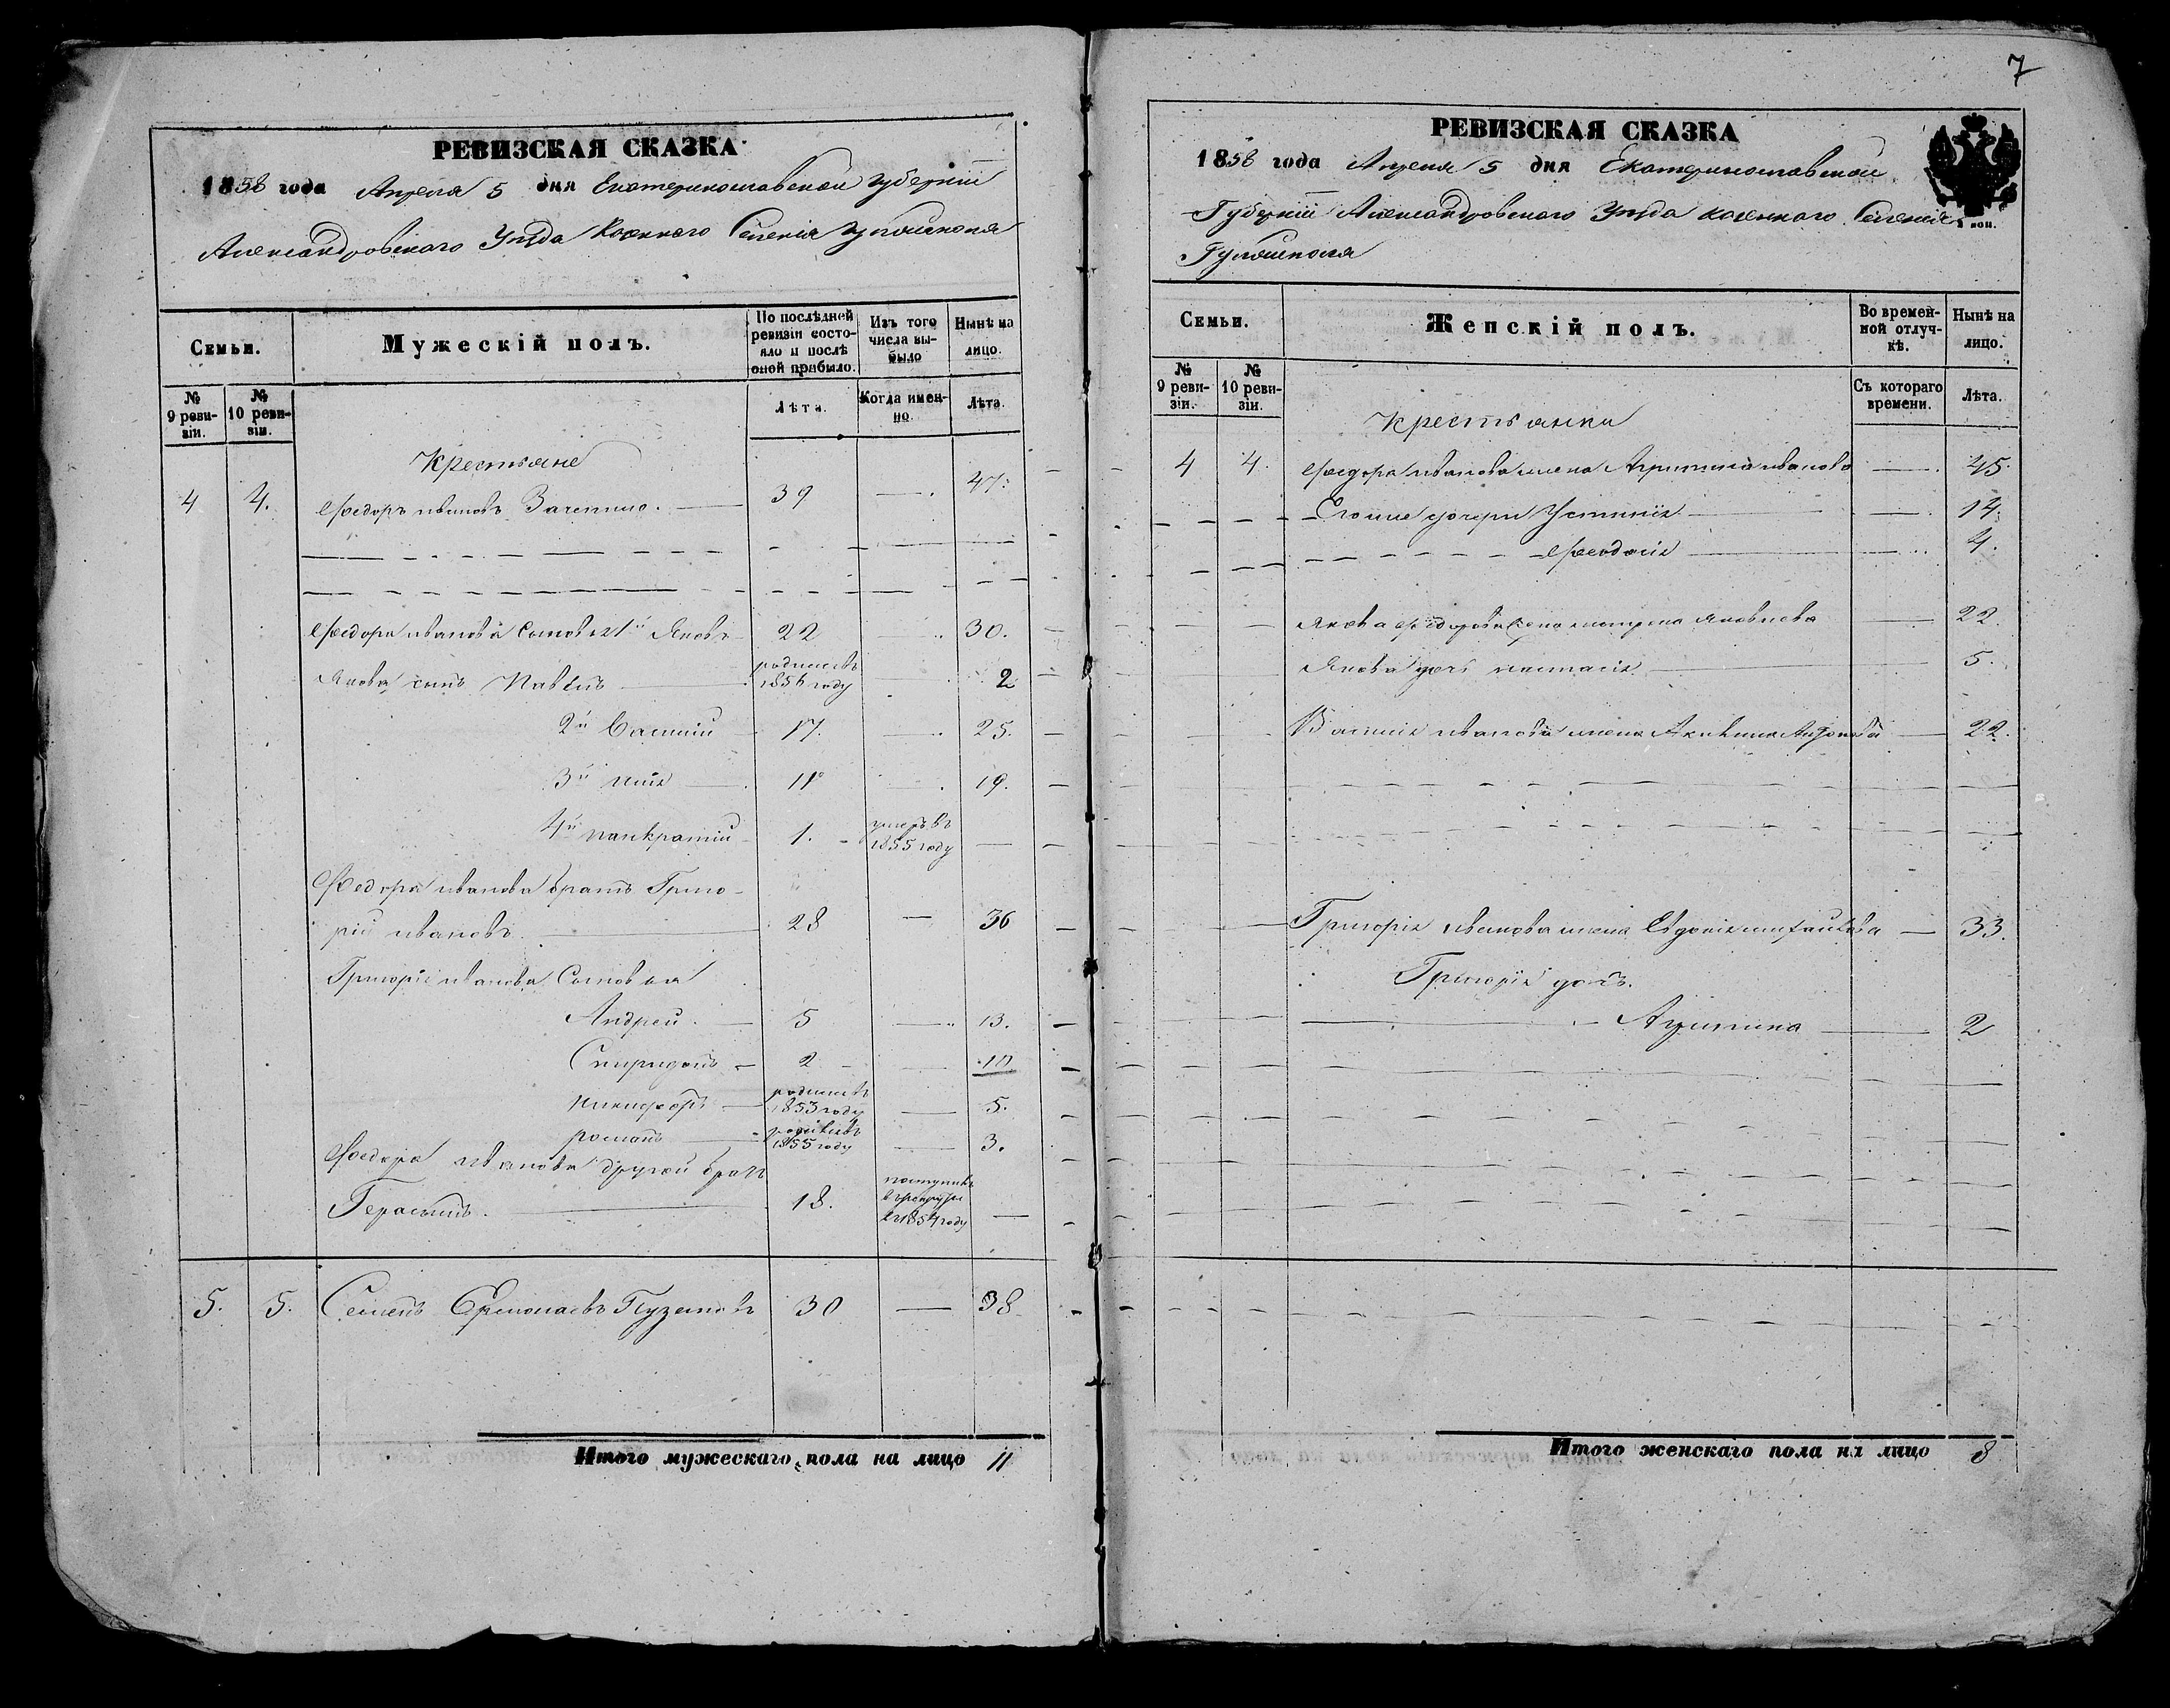 РЕВИЗСКАЯ СКАЗКА
1858 года Апреля 5 дня Екатеринославской губернiи
Александровского Уезда Казенного Селенiя гуляйполя
Семьи.
Мужескiй полъ.
По послѣдней ревизiи состояло и послѣ оной прибыло.
Изъ того числа выбыло
Нынѣ на лицо.
№ 9 ревизiи.
№ 10 ревизiи.
Лѣта.
Когда именно.
Лѣта.
Крестьяне
4 4. Федоръ ивановъ 39 — 47.
Федора иванова Сыновья 1й Яковъ 22 30.
Якова сынъ Павелъ родился въ 1856 году 2
2й Василий 17. — 25.
3й илiя 11 19.
4й панкратiй 1. умеръ въ 1855 году —
Федора иванова братъ Григо-
рiй ивановъ. 28 — 36
Григорiя иванова Сыновья
Андрей. 5 — 13.
Спиридонъ 2 — 10
никифоръ родился въ 1853 году — 5.
романъ родился въ 1855 году — 3.
Федора иванова другой братъ
Герасимъ. 18. поступилъ в рекруты в 1854 году —
5. 5. Семенъ Ермолаевъ 30 — 38
Итого мужескаго пола на лицо 11
7
РЕВИЗСКАЯ СКАЗКА
1858 года Апреля 5 дня Екатеринославской
Губернiи Александровского Уезда казенного Селенiя
Гуляйполя
Семьи.
Женскiй полъ.
Во временной отлучкѣ.
Нынѣ на лицо.
№ 9 ревизiи.
№ 10 ревизiи.
Съ котораго времени.
Лѣта.
Крестьянки
4 4. Федора иванова жена иванова — 45.
Его же дочери Устинiя — 14.
Феодосiя — 4.
Якова федорова жена матрена Яковлева — 22.
Якова дочь настасiя — 5.
Василiя иванова жена Акилина — 22.
Григорiя иванова жена Евдокiя михайлова — 33.
Григорiя дочь.
— 2
Итого женскаго пола на лицо 8